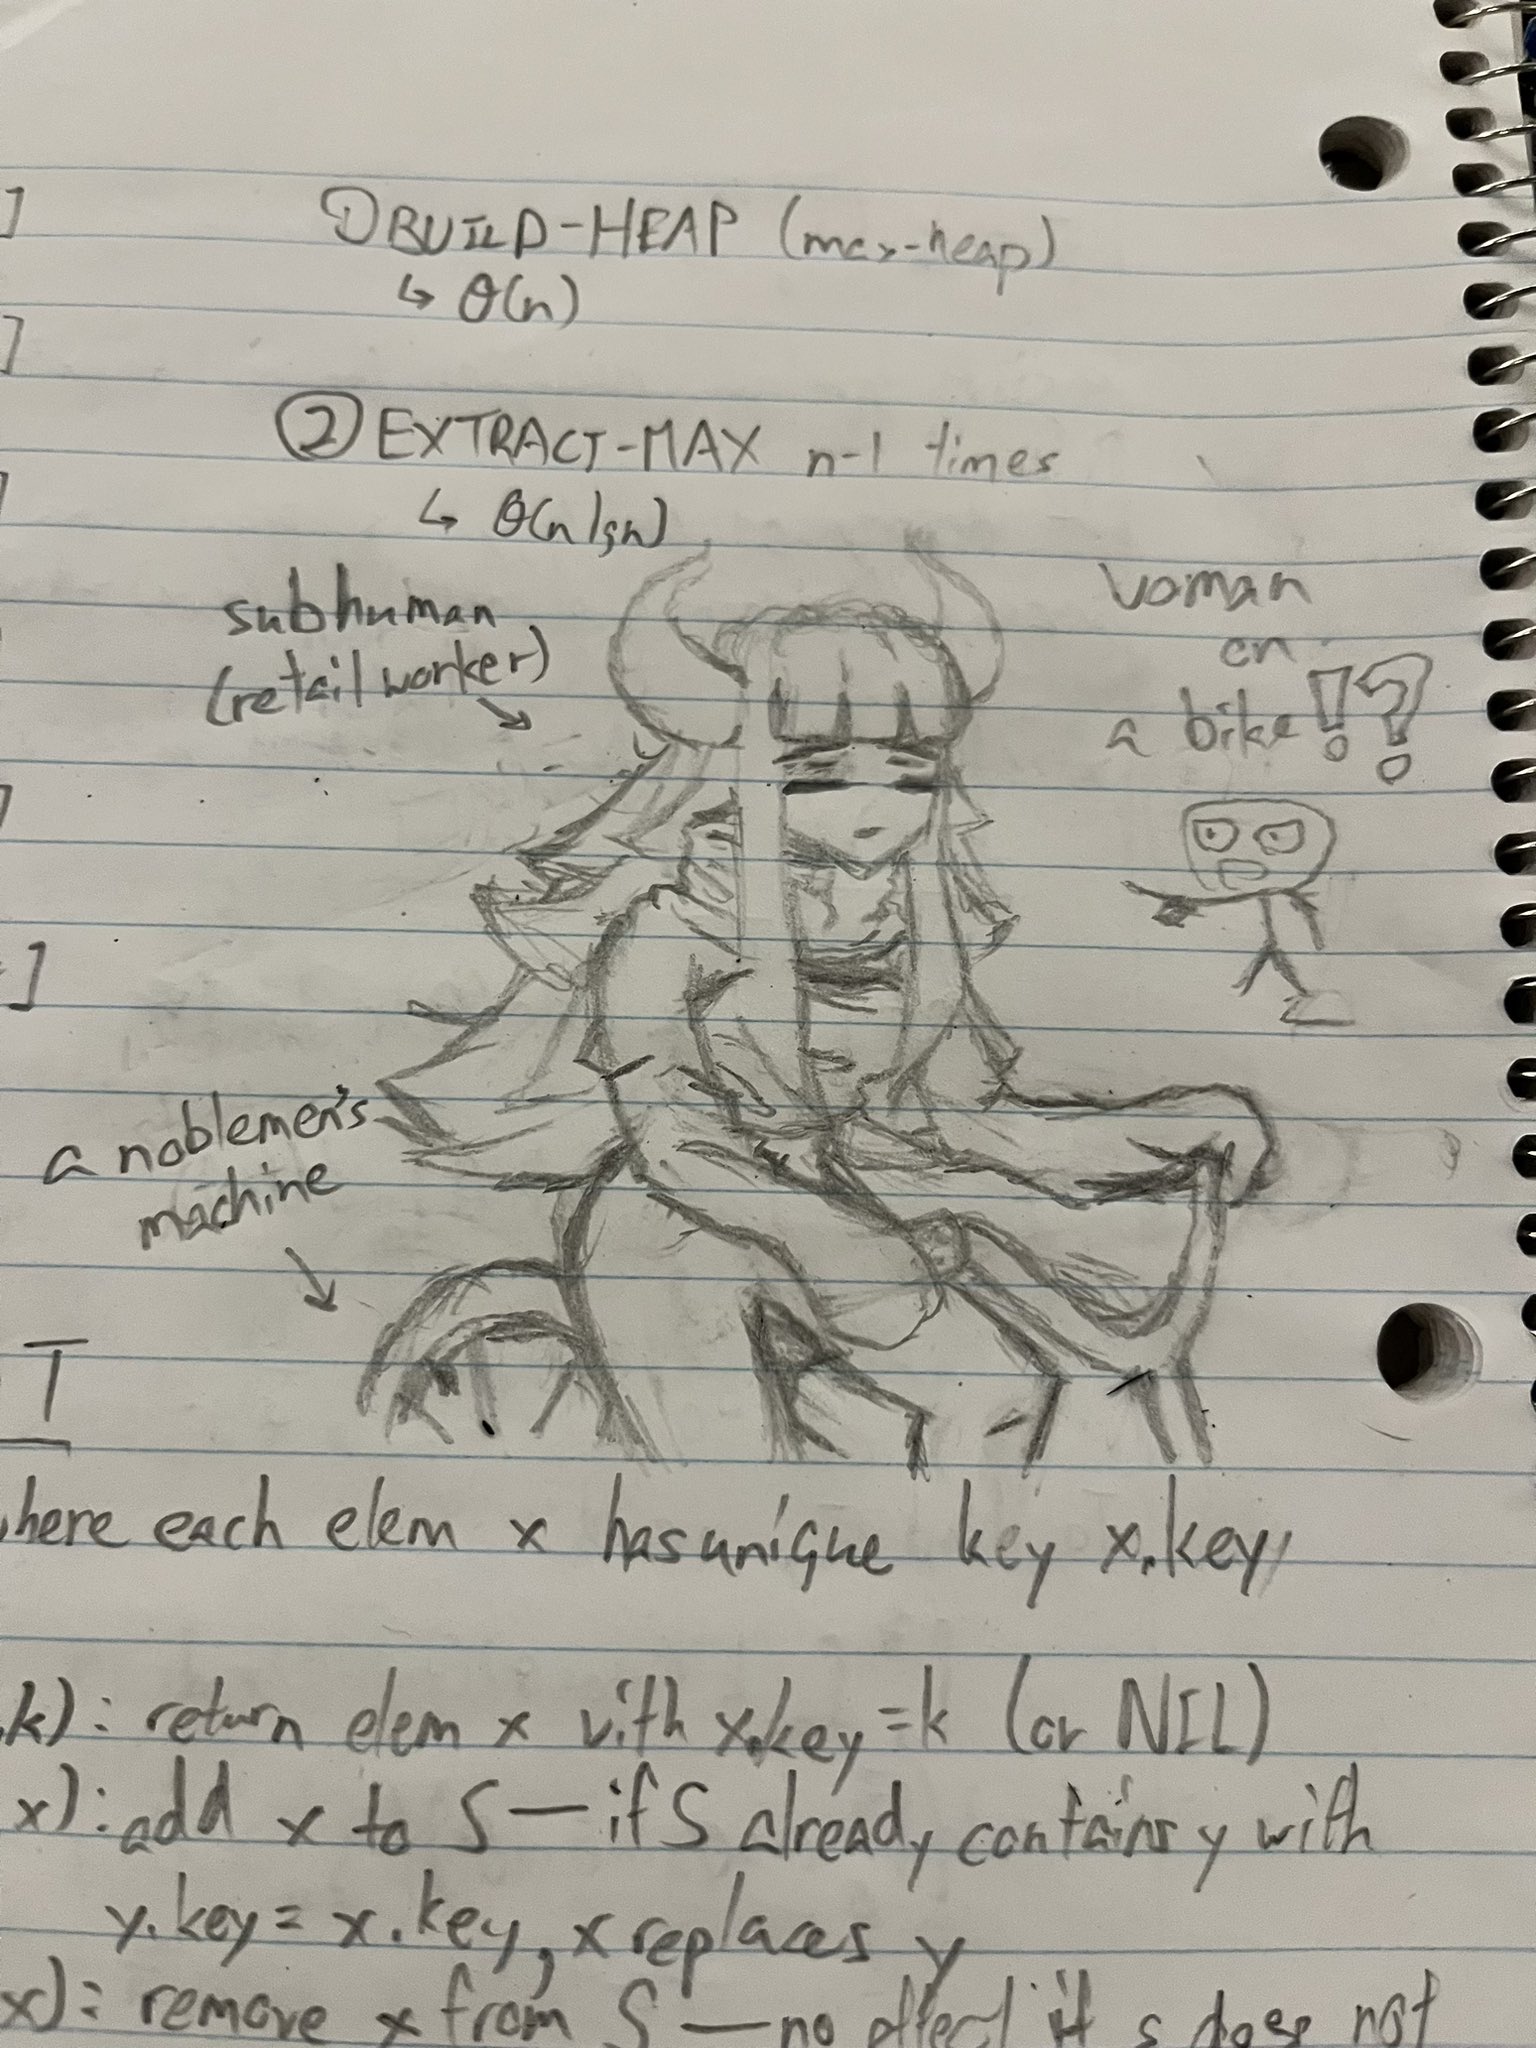 ]
① BUILD-HEAP (max-heap)
↳ Θ(n)
]
② EXTRACT-MAX n-1 times
↳ Θ(n lg n)
]
subhuman
(retail worker)
woman
on
a bike!?
]
]
a noblemen's
machine
T
here each elem x has unique key x.key
k): return elem x with x.key=k (or NIL)
x): add x to S — if S already contains y with
y.key = x.key, x replaces y
x): remove x from S — no effect if s does not